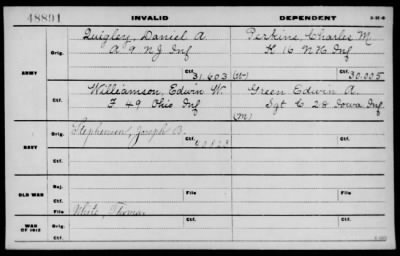 48891 INVALID DEPENDENT 3-31-8
Quigley, Daniel A. Perkins, Charles M.
Orig. A 9 NJ Inf K 16 N.H. Inf
ARMY Ctf. 31,603 (W) Ctf. 30.005
Williamson, Edwin W. Green Edwin A.
Ctf. F 49 Ohio Inf Sgt C 28 Iowa Inf
(M)
Stephenson, Joseph B.
Orig.
NAVY Ctf.
Ctf.
Rej.
OLD WAR File File
Ctf.
White, Thomas
Orig. Ctf. Ctf.
WAR OF 1812
Ctf.